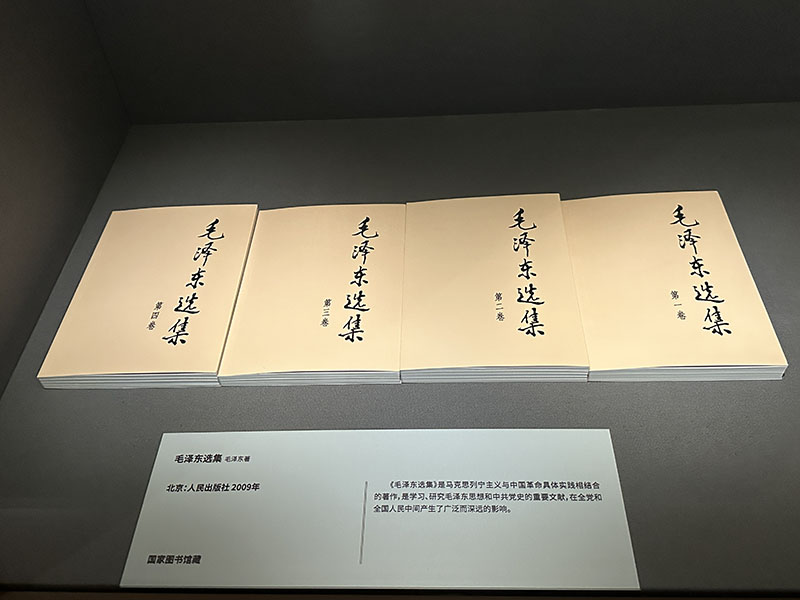 毛泽东选集
第四卷
毛泽东选集
第三卷
毛泽东选集
第二卷
毛泽东选集
第一卷
毛泽东选集 毛泽东著
北京：人民出版社 2009年
国家图书馆藏
《毛泽东选集》是马克思列宁主义与中国革命具体实践相结合
的著作，是学习、研究毛泽东思想和中共党史的重要文献，在全党和
全国人民中间产生了广泛而深远的影响。